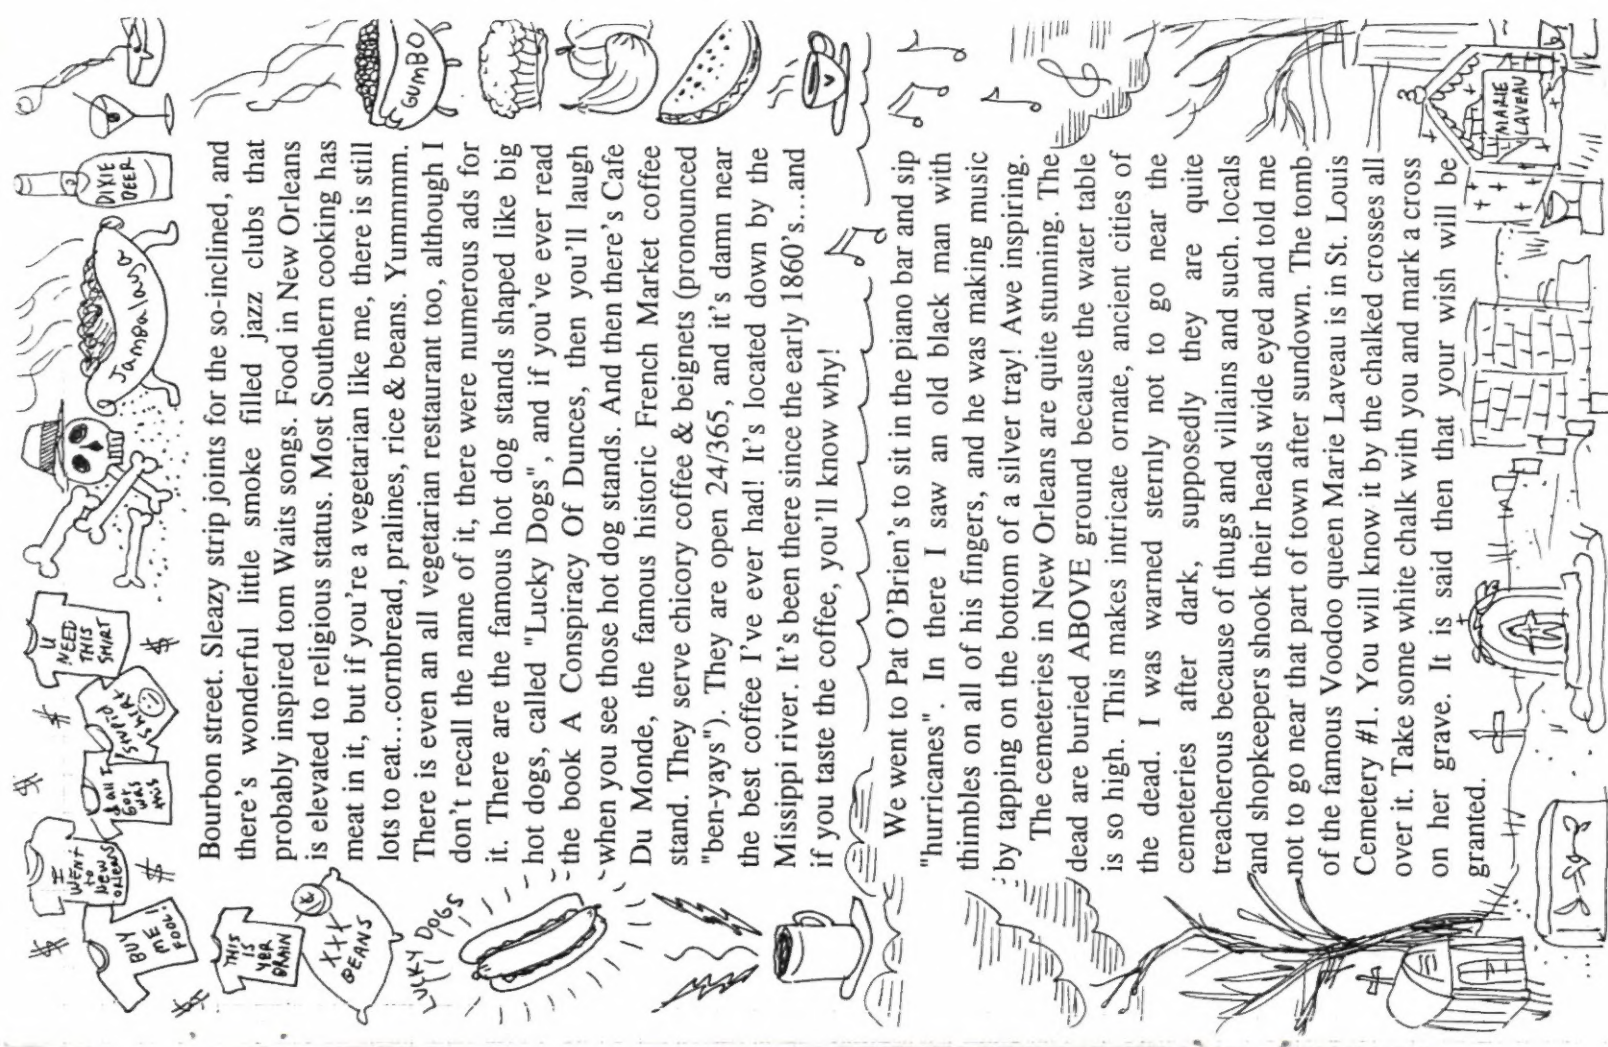 BUY
ME!
FOOL!
I
WENT
to
NEW
ORLENS
& all I
GOT
WAS
this
STUPID
SHIRT
U
NEED
THIS
SHIRT
Jambalaya
DIXIE
BEER
THIS
IS
YER
BRAIN
XXX
BEANS
LUCKY DOGS
GUMBO
Bourbon street. Sleazy strip joints for the so-inclined, and
there's wonderful little smoke filled jazz clubs that
probably inspired tom Waits songs. Food in New Orleans
is elevated to religious status. Most Southern cooking has
meat in it, but if you're a vegetarian like me, there is still
lots to eat...cornbread, pralines, rice & beans. Yummmm.
There is even an all vegetarian restaurant too, although I
don't recall the name of it, there were numerous ads for
it. There are the famous hot dog stands shaped like big
hot dogs, called "Lucky Dogs", and if you've ever read
the book A Conspiracy Of Dunces, then you'll laugh
when you see those hot dog stands. And then there's Cafe
Du Monde, the famous historic French Market coffee
stand. They serve chicory coffee & beignets (pronounced
"ben-yays"). They are open 24/365, and it's damn near
the best coffee I've ever had! It's located down by the
Missippi river. It's been there since the early 1860's...and
if you taste the coffee, you'll know why!
We went to Pat O'Brien's to sit in the piano bar and sip
"hurricanes". In there I saw an old black man with
thimbles on all of his fingers, and he was making music
by tapping on the bottom of a silver tray! Awe inspiring.
The cemeteries in New Orleans are quite stunning. The
dead are buried ABOVE ground because the water table
is so high. This makes intricate ornate, ancient cities of
the dead. I was warned sternly not to go near the
cemeteries after dark, supposedly they are quite
treacherous because of thugs and villains and such. locals
and shopkeepers shook their heads wide eyed and told me
not to go near that part of town after sundown. The tomb
of the famous Voodoo queen Marie Laveau is in St. Louis
Cemetery #1. You will know it by the chalked crosses all
over it. Take some white chalk with you and mark a cross
on her grave. It is said then that your wish will be
granted.
MARIE
LAVEAU